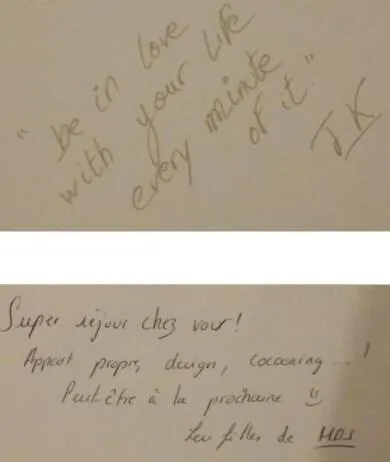 "be in love
with your life
every minute
of it."
J.K
Super séjour chez vous!
Appart propre, design, cocooning...!
Peut être à la prochaine
Les filles de MDS